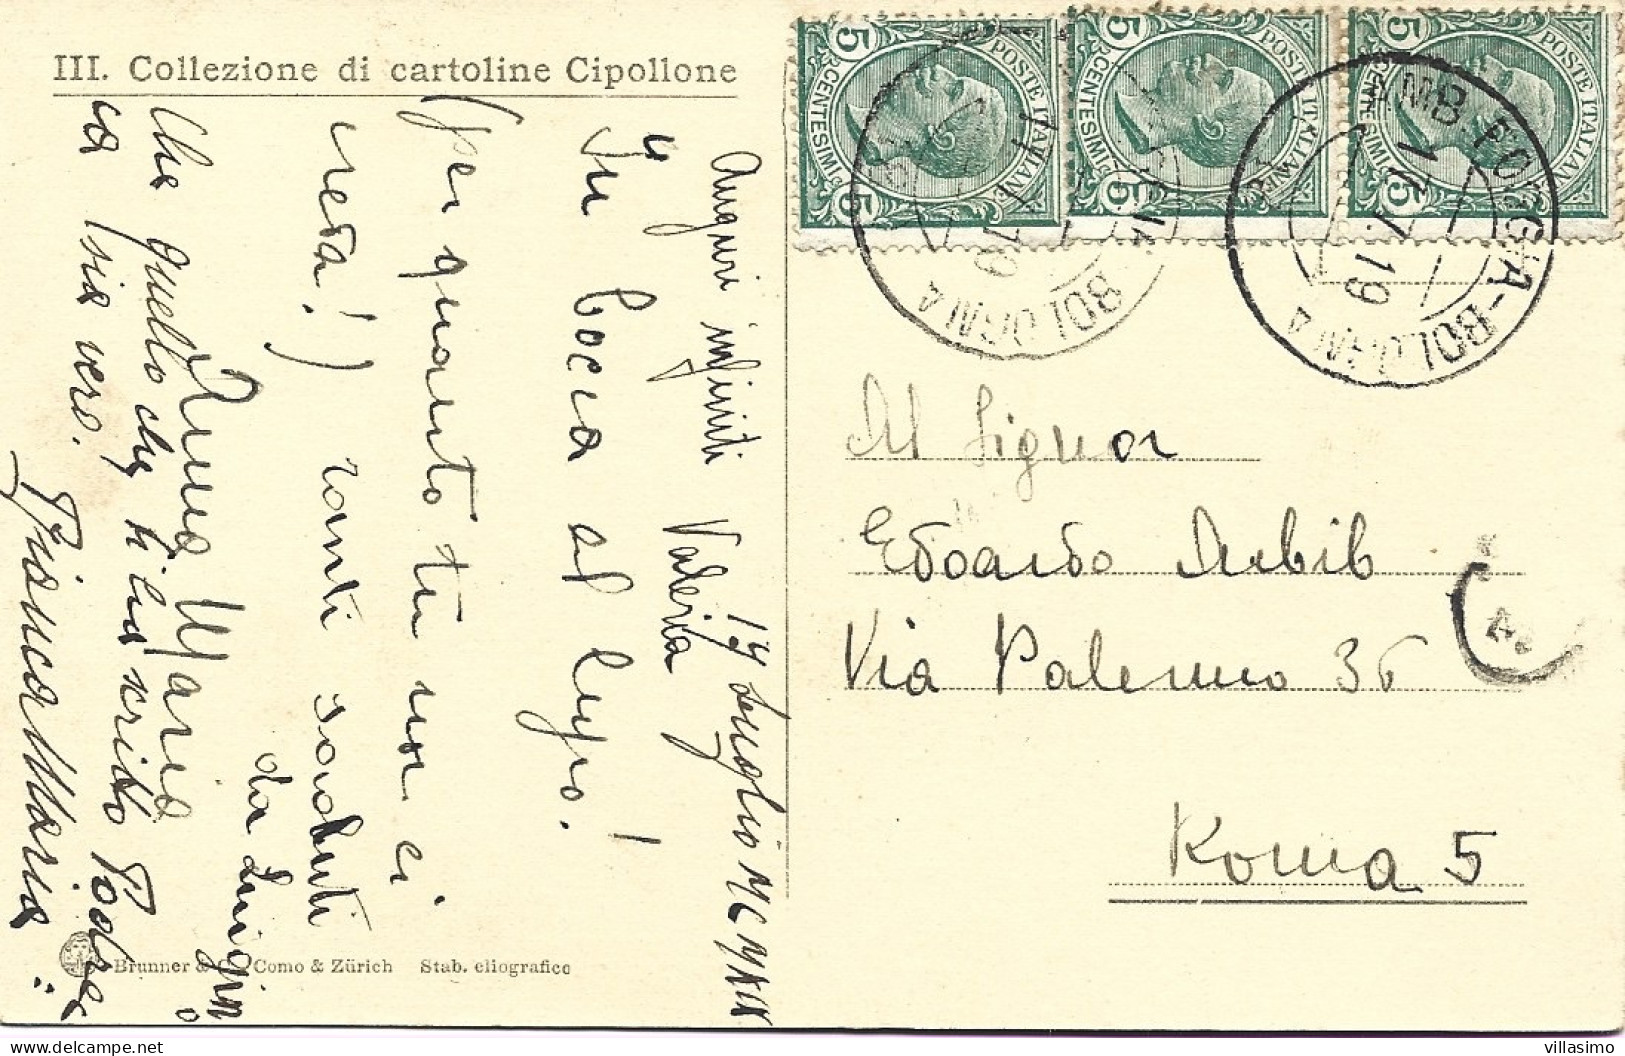 III. Collezione di cartoline Cipollone
5 CENTESIMI 5
POSTE ITALIANE
5 CENTESIMI 5
POSTE ITALIANE
5 CENTESIMI 5
POSTE ITALIANE
BOLOGNA
AMB. FOGGIA-BOLOGNA
17.7.19
Al Signor
Edoardo Arbib
Via Palermo 36
Roma 5
19 Luglio
Auguri infiniti Valeria
"In bocca al lupo!
(per quanto tu non ci
creda!) tanti saluti
da Luigino
Anna Maria
che quello che ti ha scritto
sia vero.
Giancor Maria
Brunner & C. Como & Zürich Stab. eliografico
villasimo